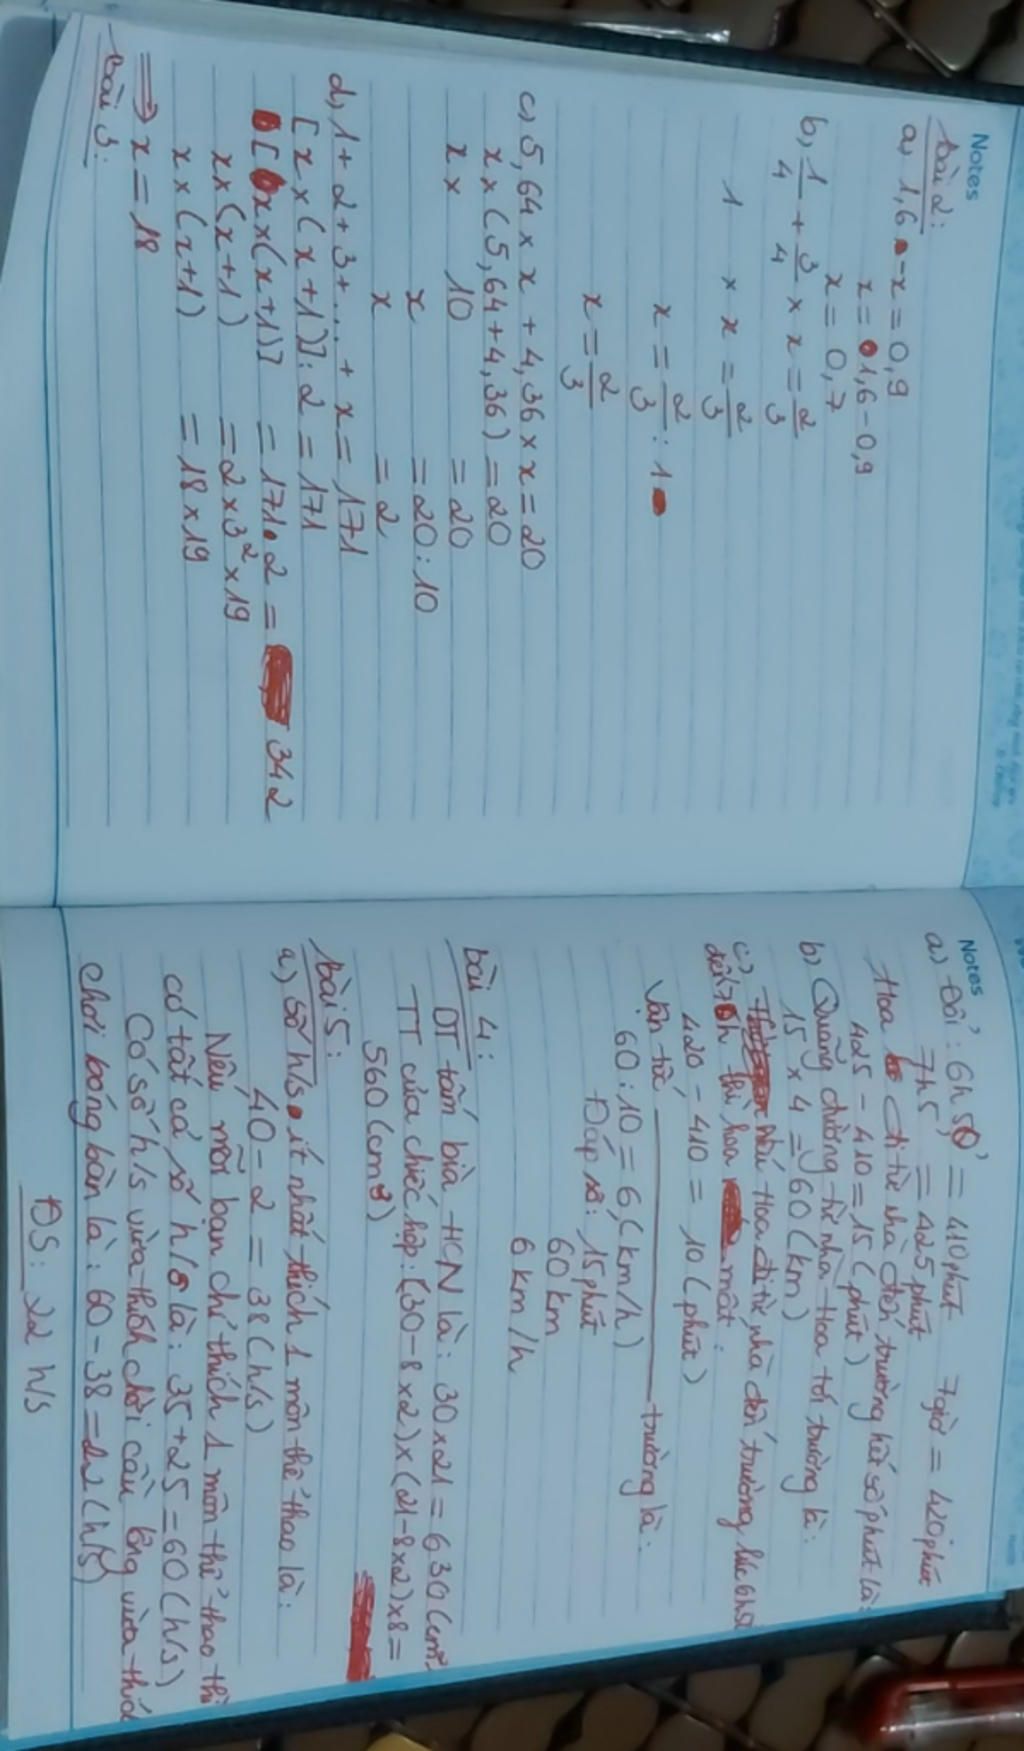 Notes
bài 2:
a, 1,6 - x = 0,9
x = 1,6 - 0,9
x = 0,7
b, 1/4 + 3/4 × x = 2/3
1 × x = 2/3
x = 2/3 : 1
x = 2/3
c, 5,64 × x + 4,36 × x = 20
x × (5,64 + 4,36) = 20
x × 10 = 20
x = 20 : 10
x = 2
d, 1 + 2 + 3 + .... + x = 171
[x × (x + 1)] : 2 = 171
[x × (x + 1)] = 171 . 2 = 342
x × (x + 1) = 2 × 3² × 19
x × (x + 1) = 18 × 19
⟹ x = 18
bài 3:
Notes
a) Đổi: 6h50' = 410 phút 7 giờ = 420 phút
7h5' = 425 phút
Hoa đi từ nhà đến trường hết số phút là:
425 - 410 = 15 (phút)
b) Quãng đường từ nhà Hoa tới trường là:
15 × 4 = 60 (km)
c) Nếu Hoa đi từ nhà đến trường lúc 6h50
đến 7h thì hoa mất:
420 - 410 = 10 (phút)
Vận tốc trường là:
60 : 10 = 6 (km/h)
Đáp số: 15 phút
60 km
6 km/h
bài 4:
DT tấm bìa HCN là: 30 × 21 = 630 (cm²)
TT của chiếc hộp: (30 - 8 × 2) × (21 - 8 × 2) × 8 =
560 (cm³)
bài 5:
a) Số h/s ít nhất thích 1 môn thể thao là:
40 - 2 = 38 (h/s)
Nếu mỗi bạn chỉ thích 1 môn thể thao thì
có tất cả số h/s là: 35 + 25 = 60 (h/s)
Có số h/s vừa thích chơi cầu lông vừa thích
chơi bóng bàn là: 60 - 38 = 22 (h/s)
ĐS: 22 h/s